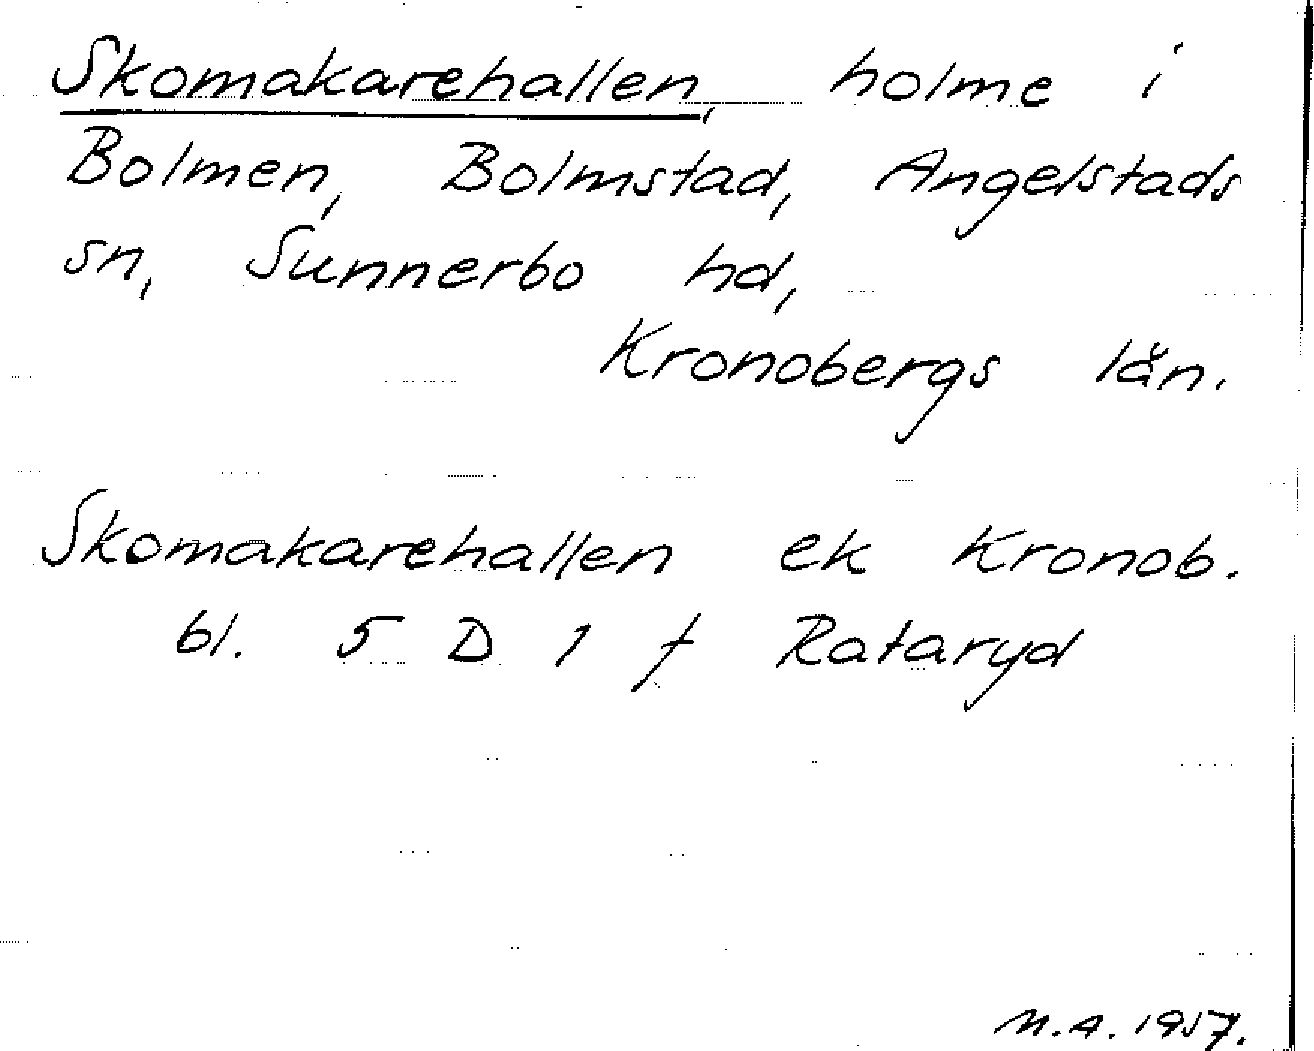 Skomakarehallen, holme i
Bolmen, Bolmstad, Angelstads
sn, Sunnerbo hd,
Kronobergs län.
Skomakarehallen ek Kronob.
bl. 5 D 1 f Rataryd
M.A. 1957.